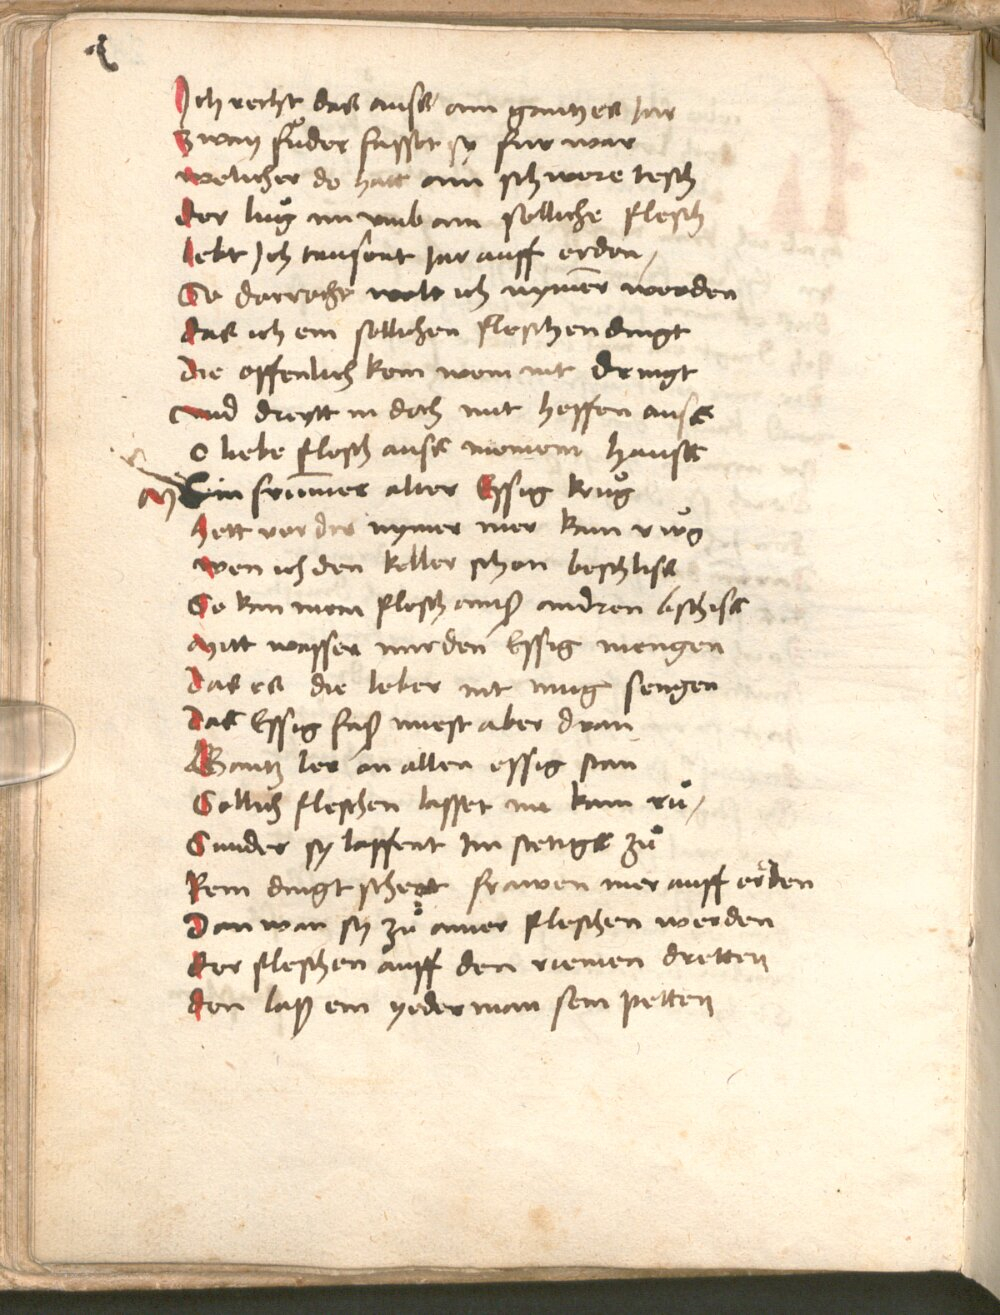 Ich recht das auss ain gantzes Jar
Zway fůder fasset sy fur war
welicher do hatt ain schwere tesch
der lůg im vmb ain solliche flesch
lebt Ich tausent Jar auff erden /
So dorrocht wolt ich nym̄er werden
das ich ein sollichen fleschen dingt
Die offenlich kein wein nit dringt
vnd dreytt in doch mit heffen auss
O liebe flesch auss meinem hauss
Ein frum̄er alter Essig krůg
hett vor dir nymer mer kain rwg
wen ich den keller schon beschliss
So kan mein flesch ainß andren bschiss
Mitt wasser mir den Essig mengen
das es die leber nit mug sengen
Das Essig faß muest aber dran
Gantz ler on allen essig stan
Sollich fleschen lasset im kain rů /
Sunder sy lapffent Im stettigs zů
Kein dingt schent frawen mer auff erden
Dan wan sy zů ainer fleschen werden
der fleschen auff den riemen dretten
den laß ein yederman sein petten